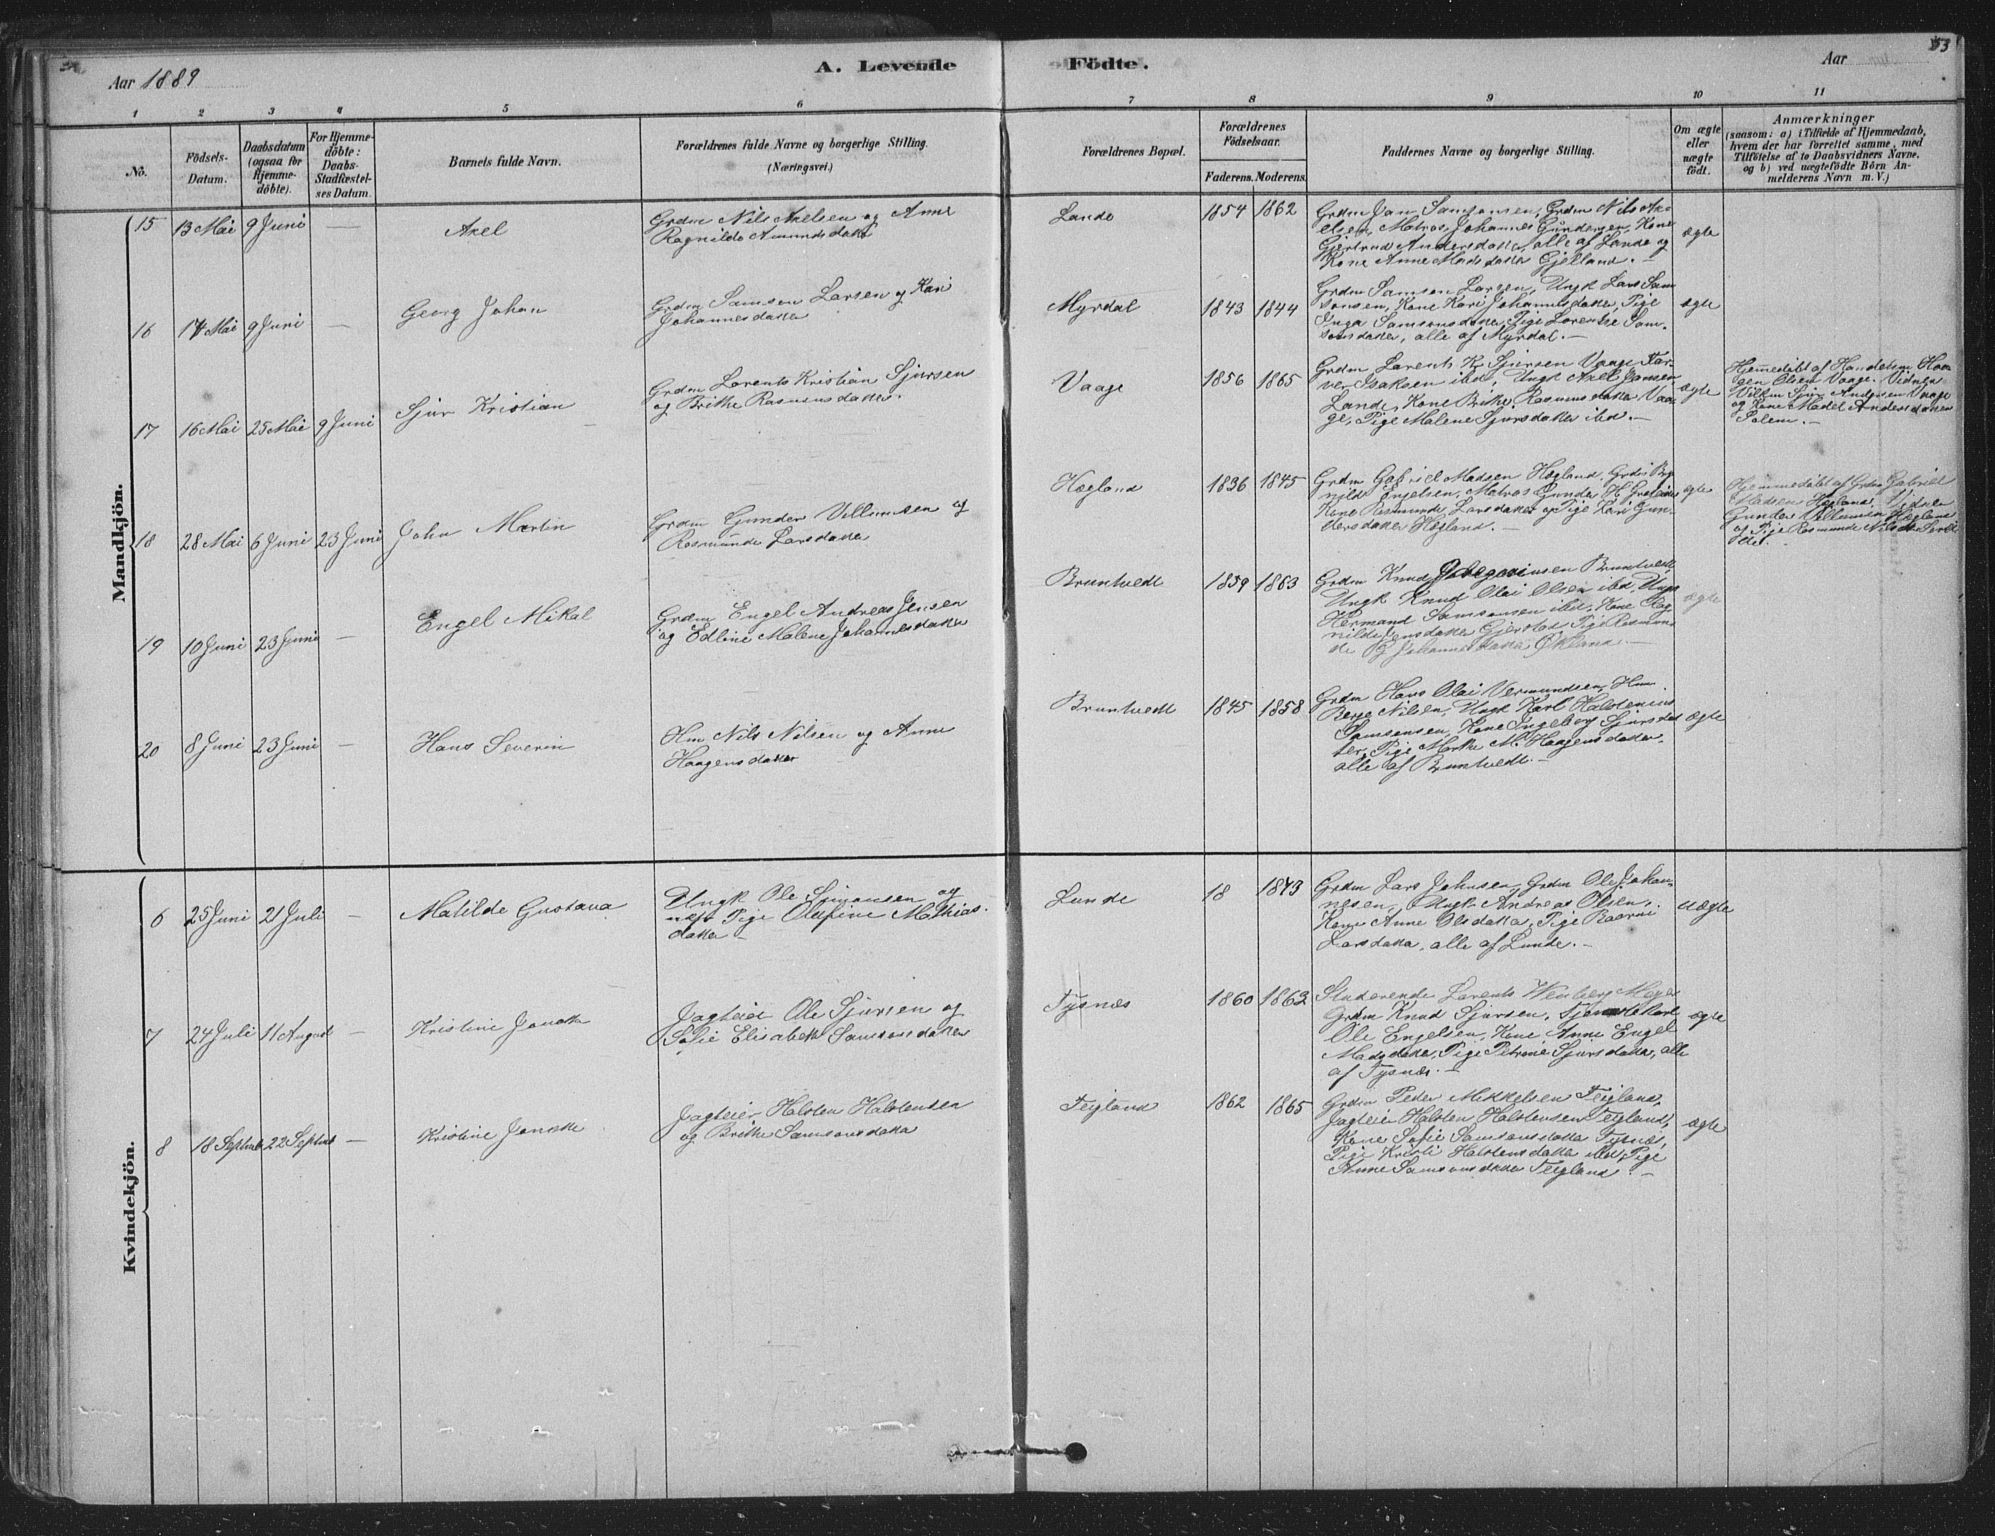 53
Aar 1889
A. Levende Födte.
Aar
1 2 3 4 5 6 7 8 9 10 11
No.
Födsels-
Datum.
Daabsdatum
(ogsaa for
Hjemme-
döbte).
For Hjemme-
döbte:
Daabs-
Stadfæstel-
ses Datum.
Barnets fulde Navn.
Forældrenes fulde Navne og borgerlige Stilling.
(Næringsvei.)
Forældrenes Bopæl.
Forældrenes
Födselsaar.
Faderens. Moderens.
Faddernes Navne og borgerlige Stilling.
Om ægte
eller
uægte
födt.
Anmærkninger
(saasom: a) i Tilfælde af Hjemmedaab,
hvem der har forrettet samme, med
Tilföielse af to Daabsvidners Navne,
og b) ved uægtefödte Börn An-
melderens Navn m. V.)
Mandkjön.
15 13 Mai 9 Juni — Axel
Grdm Nils Axelsen og Anne
Ragnilde Amundsdatter
Lande 1854 1862
Grdm Jan Samsonsen, Grdm Nils Ax-
elsen, Matros Johannes Gundersen, Kone
Gjertrud Andersdatter, alle af Lande og
Kone Anne Madsdatter Gjelland. —
ægte
16 14 Mai 9 Juni — Georg Johan
Grdm Samson Larsen og Kari
Johannesdatter
Myrdal 1843 1844
Grdm Samson Larsen, Ungk Lars Sam
sonsen, Kone Kari Johannesdatter, Pige
Inga Samsonsdatter, Pige Lorentse Sam-
sonsdatter, alle af Myrdal. —
ægte
17 16 Mai 25 Mai 9 Juni Sjur Kristian
Grdm Lorents Kristian Sjursen
og Brithe Rasmusdatter.
Vaage 1856 1865
Grdm Lorents Kr. Sjursen Vaage, Far-
ver Isaksen ibd, Ungk Axel Jansen
Lande, Kone Brithe Rasmusdatter Vaa-
ge, Pige Malene Sjursdatter ibd. —
ægte
Hjemmedöbt af Handelsm Haa-
gen Olsen Vaage. Vidner
Sjur Andersen Vaage
og Kone Madel Andersdatter
Solem. —
18 28 Mai 6 Juni 23 Juni John Martin
Grdm Gunder Villumsen og
Rosmunde Larsdatter
Hægland 1836 1845
Grdm Gabriel Madsen Hægland, Grdm
Engelsen, Matros Gunder H.
Kone Rosmunde Larsdatter og Pige Kari Gun-
dersdatter Hægland. —
ægte
Hjemmedöbt af Grdm Gabriel
Madsen Hægland, Vidner
Gunder Villumsen Hægland
og Pige Rosmunde Nilsdatter
19 10 Juni 23 Juni — Engel Mikal
Grdm Engel Andreas Jensen
og Edline Malene Johannesdatter
Bruntvedt 1859 1863
Grdm Knud Bruntvedt,
Ungk Knud Olai Olsen ibd, Ungk
Hermand Samsonsen ibd, Kone Rag-
nilde Jensdatter Gjerstad, Pige Rosmun-
de Johannesdatter Økland. —
ægte
20 8 Juni 23 Juni — Hans Severin
Hm Nils Nilsen og Anne
Haagensdatter
Bruntvedt 1845 1858
Grdm Hans Olai Vermundsen, Hm
Berge Nilsen, Ungk Karl Halstenius
Samsonsen, Kone Ingeborg Sjursdat
ter, Pige Marthe M. Haagensdatter,
alle af Bruntvedt. —
ægte
Kvindekjön.
6 25 Juni 21 Juli — Matilde Gustava
Ungk Ole Simonsen og
Pige Olufine Mathias-
datter —
Lunde 18 1843
Grdm Lars Johnsen, Grdm Ole Johan-
nesen, Ungk Andreas Olsen,
Kone Anne Olsdatter, Pige
Larsdatter, alle af Lunde. —
uægte
7 24 Juli 11 August — Kristine Janette
Jagteier Ole Sjursen og
Sofie Elisabeth Samsonsdatter
Tysnæs 1860 1862
Studerende Lorents Meyer
Grdm Knud Sjursen, Tjenestekarl
Ole Engelsen, Kone Anne Engel
Madsdatter, Pige Petrine Sjursdatter, alle
af Tysnæs. —
ægte
8 18 Septemb 22 Septemb — Kristine Janette
Jagteier Halsten Halstensen
og Brithe Samsonsdatter
Teigland 1862 1865
Grdm Peder Mikkelsen Teigland,
Jagteier Halsten Halstensen Teigland,
Kone Sofie Samsonsdatter Tysnæs,
Pige Kristi Halstensdatter ibd, Pige
Anne Samsonsdatter Teigland. —
ægte